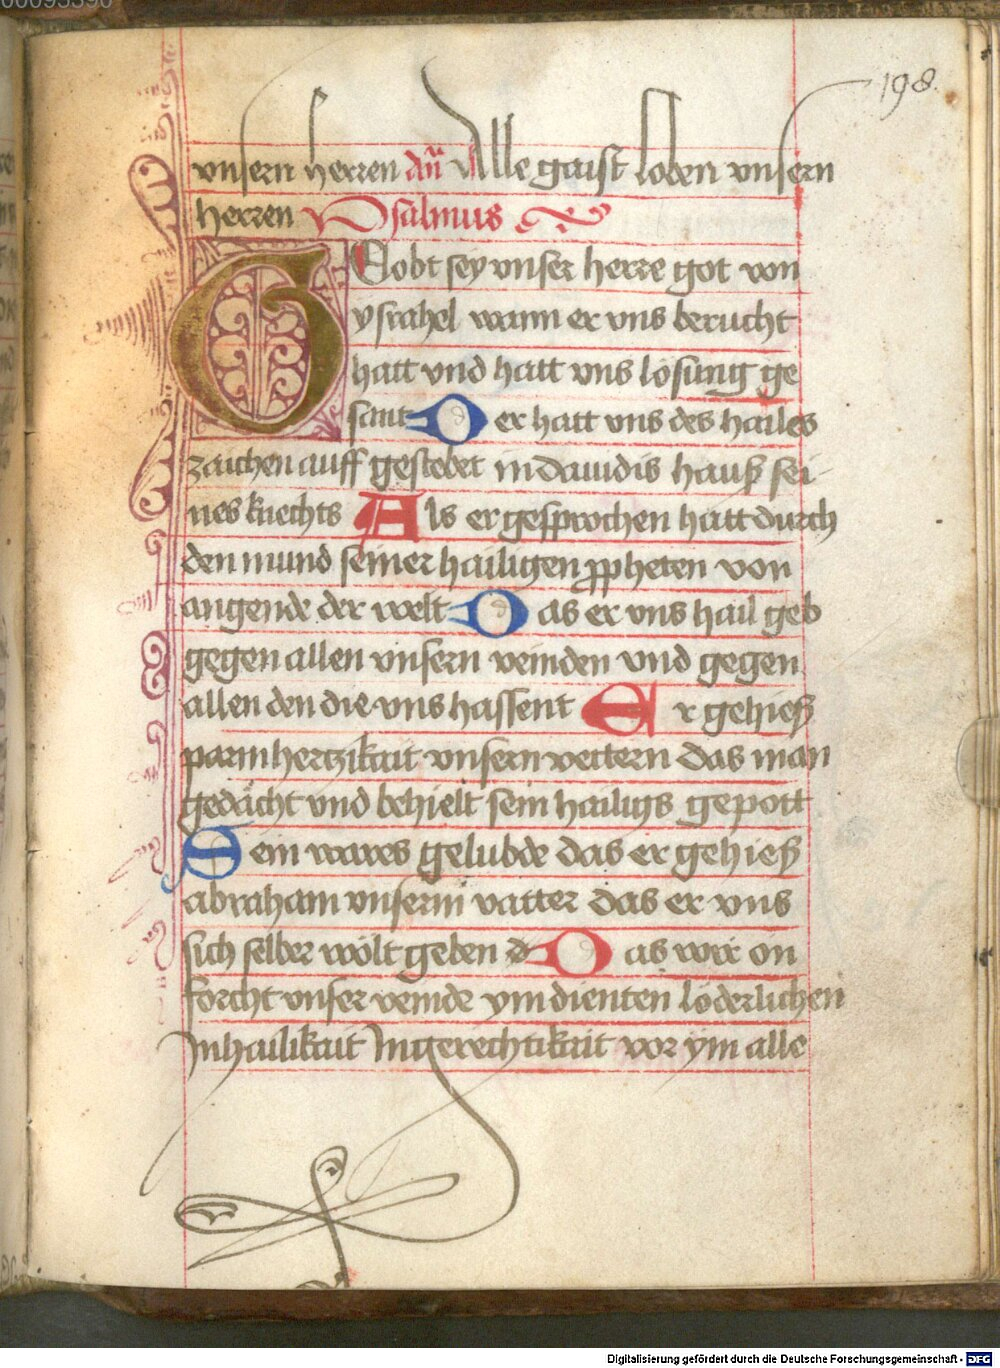 00095590
198
vnsern herren an̄ Alle gaist loben vnsern
herren Psalmus
GEobt sey vnser herre got von
ysrahel wann er vns berucht
hatt vnd hatt vns losung ge
sant Der hatt vns des hailes
zaichen auff gestebet in dauidis hauß sei
nes knechts Als er gesprochen hatt durch
den mund seiner hailigen ppheten von
angende der welt Das er vns hail geb
gegen allen vnsern veinden vnd gegen
allen den die vns hassent Er gehieß
parmhertzikait vnsern vettern das man
gedächt vnd behielt sein hailigs gepott
Sein wares gelubde das er gehieß
abraham vnserm vatter das er vns
sich selber wölt geben Das wir on
forcht vnser veinde ym dienten löderlichen
In hailikait In gerechtikait vor ym alle
Digitalisierung gefördert durch die Deutsche Forschungsgemeinschaft - DFG